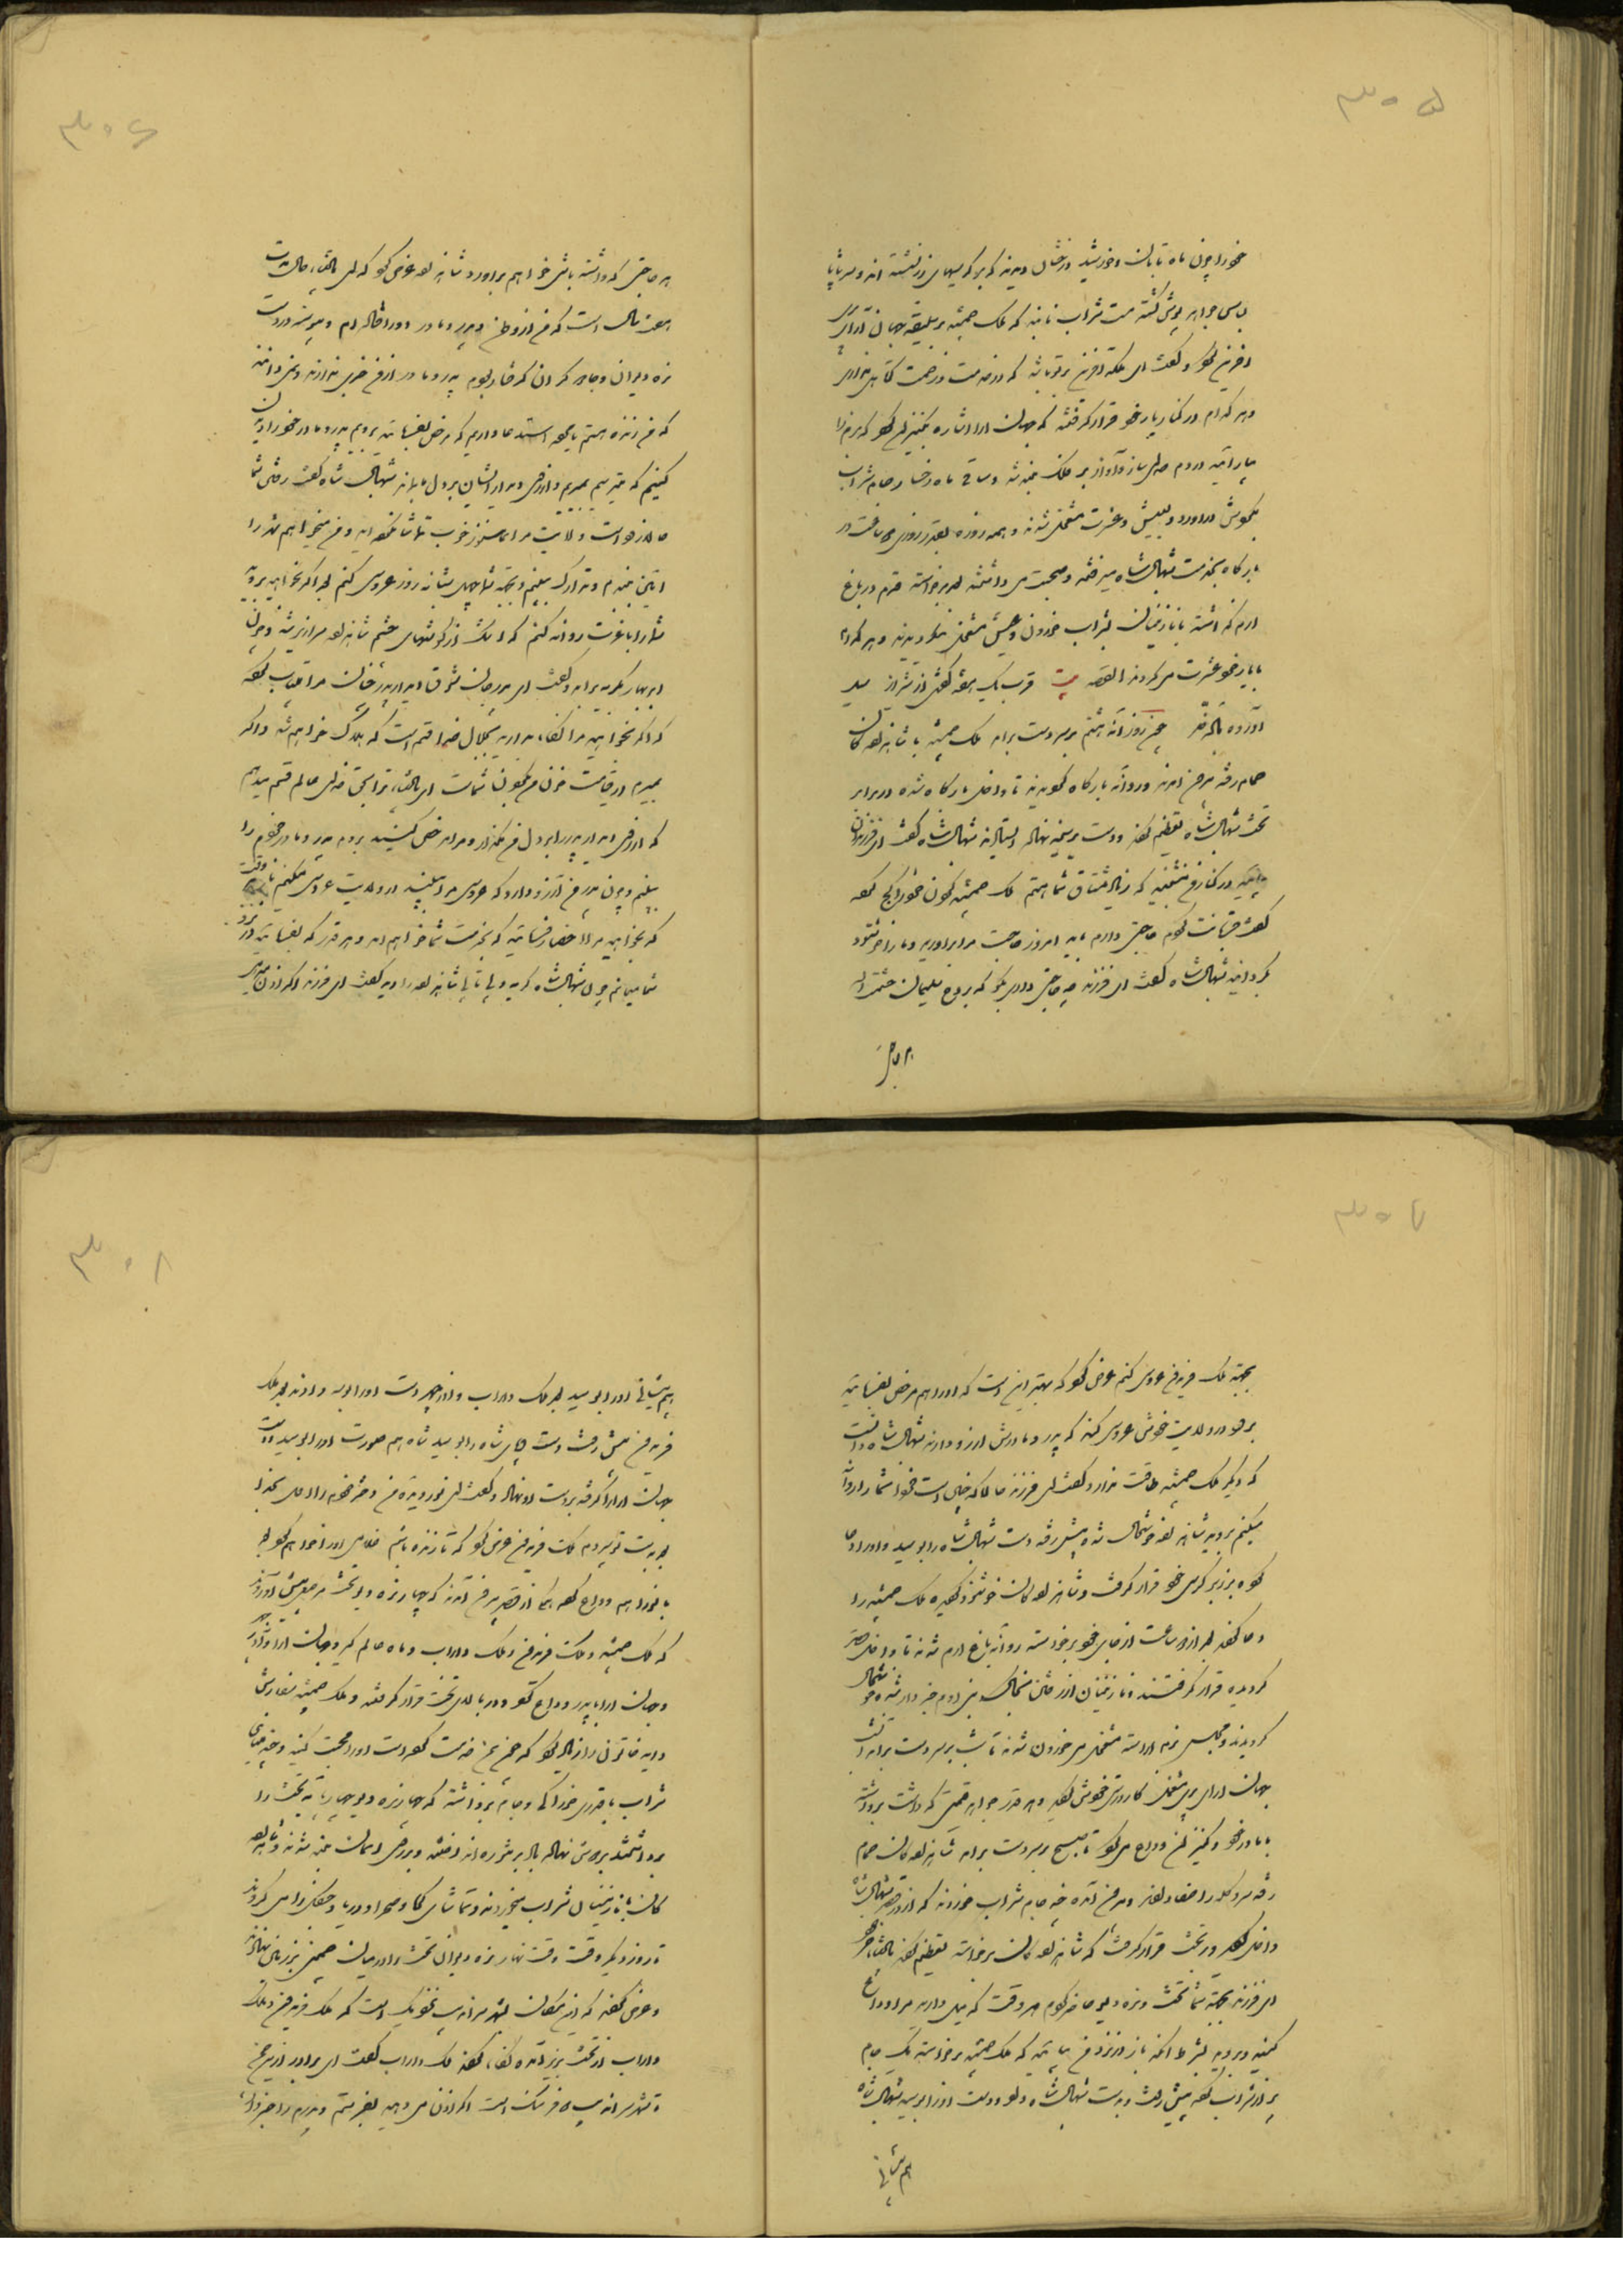 ۳۰۵
خود را چون ماه تابان و خورشید درخشان دیدند که بر کرسیهای زر نشسته اند و سر تا پا
لباس جواهر پوش گشته مست شراب نابند که ملک جمشید بر سلیقه جهان آرای
آفرین کرد و گفت ای ملکه آفرین بر تو باد که در خدمت و زحمت کوتاهی نداری
و هر کدام در کنار یار خود قرار گرفتند که جهان ارا اشاره بکنیزان کرد که بزم را
بیارائید در دم صدای ساز و آواز بر فلک بلند شد و ساقی ماه رخسار جام شراب
بگردش در آورد و بعیش و عشرت مشغول شدند و همه روزه بقدر
بارگاه بخدمت شهبال شاه میرفتند و صحبت می داشتند بعد برخواسته خرم در باغ
ارم گذاشته با نازنینان بشراب خوردن و عیش مشغول میگردیدند و هر کدام
با یار خود عشرت می کردند القصه بیت قرب یک هفته گفتش از شیراز
چون روز آنه هشتم بر سر دست برآمد ملک جمشید با شاهزاده گان
حمام رفته بیرون آمدند و روانه بارگاه گردیدند تا داخل بارگاه شده در برابر
تخت شهبال شاه تعظیم کرده و دست بر سینه نهاده ایستادند شهبال شاه گفت ای فرزندان
بیائید در کنار من بنشینید که زیاد مشتاق شما هستم ملک جمشید گردن خود را کج کرده
گفت قربانت گردم حاجتی دارم باید امروز حاجت مرا برآورید و ما را خوشنود
گردانید شهبال شاه گفت ای فرزند چه حاجتی داری بگو که بروح سلیمان حشمت الله
هر حاجتی
۳۰۶
هر حاجتی که داشته باشی خواهم برآورد شاهزاده عرض کرد که ای
هفت سال است که من از وطن و پدر و مادر دور افتاده ام و پیوسته در دست
نره دیوان و جادوگران گرفتار بودم پدر و مادر از من خبری ندارند و نمی دانند
که من زنده هستم یا مرده استدعا دارم که مرخص بفرمائید برویم پدر و مادر خود را دیدن
کنیم که میترسم بمیرم و آرزوی دیدار ایشان بر دل بماند شهبال شاه گفت رفتن شما
حالا زود است ولایت مرا هنوز خوب تماشا نکرده اید و من میخواهم شهر را
آئین ببندم و تدارک ببینم و بجهة شما چهل شبانه روز عروسی کنم بعد اگر بخواهید بروید
شما را با عزت روانه کنم که اشک از گوشهای چشم شاهزاده سرازیر شد و چون
ابر بهار بگریه درآمد و گفت ای پدر جان شوق دیدار پدر چنان مرا بیتاب کرده
که اگر بخواهید مرا نگاه دارید بجلال خدا قسم است که هلاک خواهم شد و اگر
بمیرم در قیامت خون من بگردن شماست ای پادشاه ترا بحق خدای عالم قسم میدهم
که آرزوی دیدار پدر را بر دل من نگذار و مرا مرخص کنید بروم پدر و مادر خودم را
ببینم و چون پدر من آرزو دارد که عروسی مرا ببیند در ولایت عروسی میکنم تا وقت
که بخواهید مرا احضار فرمائید که بخدمت شما خواهم آمد و هر قدر که بفرمائید در نزد
شما میمانم چون شهبال شاه گریه و بیتابی شاهزاده را دید گفت ای فرزند اگر اذن میدهی
۳۰۷
بجهة ملک فریدفرخ عروسی کنم عرض کرد که بهتر این است که او را هم مرخص بفرمائید
برود در ولایت خودش عروسی کند که پدر و مادرش آرزو دارند شهبال شاه دانست
که دیگر ملک جمشید طاقت ندارد گفت ای فرزند حالا که چنین است فردا شما را روانه
میکنم بروید شاهزاده خوشحال شد و پیش رفته دست شهبال شاه را بوسید و او را دعا
کرده بر زبر کرسی خود قرار گرفت و شاهزاده گان خوشنود گردیده ملک جمشید را
دعا کردند بعد از دو ساعت از جای خود برخواسته روانه باغ ارم شدند تا داخل قصر
گردیده قرار گرفتند و نازنینان از رفتن بنجال کسو بنی ادم خبردار شده خوشحال
گردیدند و مجلس بزم آراسته مشغول می خوردن شدند تا شب بر سر دست برآمد آنشب
جهان ارای پری مشغول کارسازی خودش گردید و هر قدر جواهر قیمتی که داشت برداشته
با مادر خود و کنیزکان وداع می کرد تا صبح بر سر دست برآمد شاهزاده گان حمام
رفته سر و کله را صفا دادند و بیرون آمده چند جام شراب خوردند که از در قصر شهبال شاه
داخل گردید و در تخت قرار گرفت که شاهزاده گان برخواسته تعظیم کردند پادشاه فرمود
ای فرزند بجهة شما تخت و نره دیو حاضر کردم هر وقت که میل دارید مرا وداع
کنید و بروید بشرط آنکه باز در نزد من بیائید که ملک جمشید برخواسته یک جام
پر از شراب کرده پیش رفت و بدست شهبال شاه داد و دست او را بوسید شهبال شاه
هم پیشانی
۳۰۸
هم پیشانی او را بوسید بعد ملک داراب و آذرچهر دست او را بوسه دادند بعد ملک
فریدفرخ پیش رفت دست و پای شاه را بوسید شاه هم صورت او را بوسید دست
جهان ارا را گرفته بر دست او نهاد و گفت ای نور دیده من دختر خودم را اول بخدا
بعد بدست تو سپردم ملک فریدفرخ عرض کرد که تا زنده باشم غلامی او را خواهم کرد بعد
با مادر هم وداع کرده آنگاه از قصر بیرون آمدند که چهار نره دیو تخت مرصع پیش آوردند
که ملک جمشید و ملک فریدفرخ و ملک داراب و ماه عالم گیر و جهان ارا و آذرچهر
و جهان ارا با پدر وداع کرد و در بالای تخت قرار گرفتند و ملک جمشید سفارش
دایه خاتون را زیاد کرد که چون بمن خدمت کرده است او را محبت کنید و چند مینای
شراب با قدری خوراکی و جام برداشتند که چهار نره دیو چهار پایه تخت را
برداشتند بر دوش نهاده بال بر شراره انداختند و بر روی آسمان بلند شدند و شاهزاده
گان با نازنینان شراب میخوردند و تماشای کوه و صحرا و دریا و جنگل را می کردند
تا روز دیگر وقت وقت نهار نره دیوان تخت را در میان چمن بر زمین نهادند
و عرض کردند که از این مکان بشهر سراندیب نزدیک است که ملک فریدفرخ و ملک
داراب از تخت بزیر آمده نگاه کردند ملک داراب گفت ای برادر از این چمن
تا شهر سراندیب ۵ فرسنگ است اگر اذن می دهید بفرستم و پدرم را خبردار